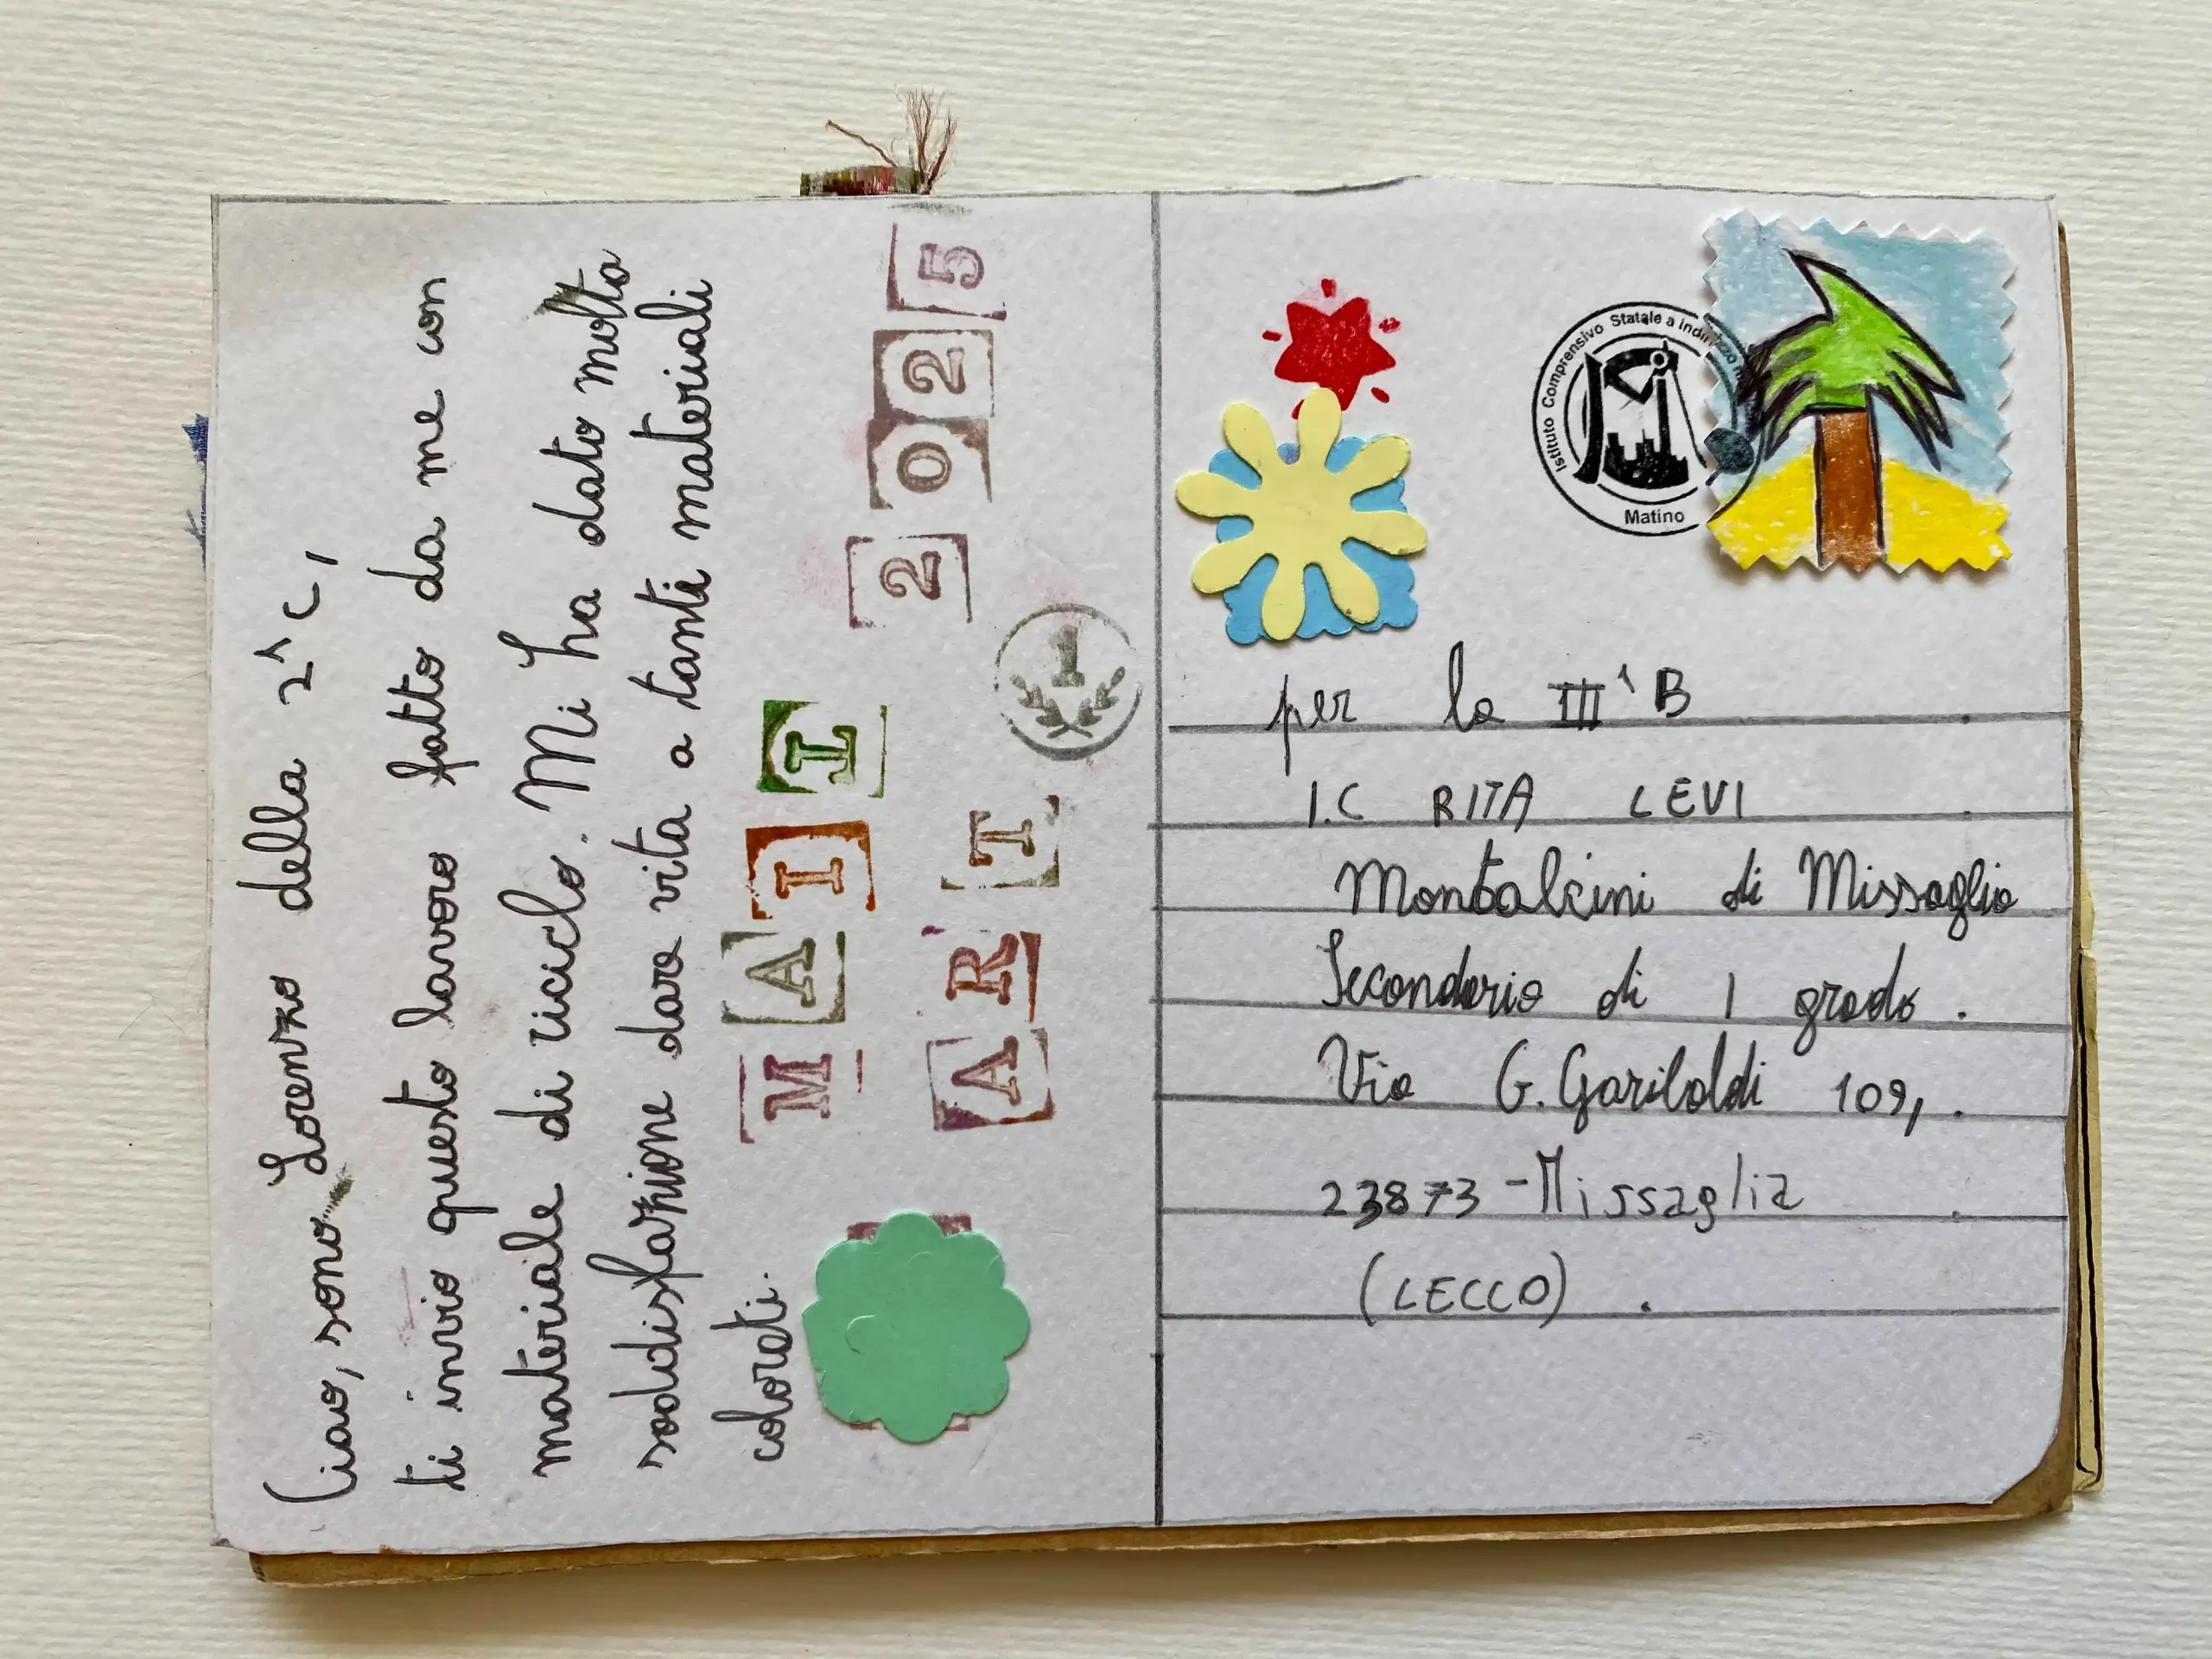 Ciao, sono Lorenzo della 2^C,
ti invio questo lavoro fatto da me con
materiale di riciclo. Mi ha dato molta
soddisfazione dare vita a tanti materiali
colorati.
MAIL
ART
2025
1
Istituto Comprensivo Statale a Indirizzo
Matino
per la III^B
I.C RITA LEVI
Montalcini di Missaglia
Secondaria di 1 grado.
Via G. Garibaldi 109,
23873-Missaglia
(LECCO).